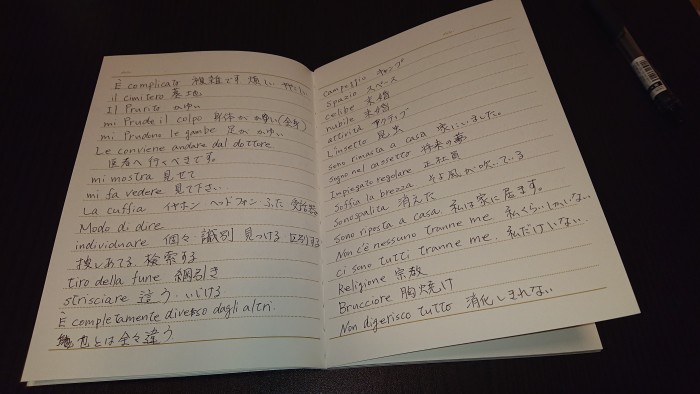 È complicato 複雑です 煩しい ややこしい
il cimitero 墓地
Il Prurito かゆい
mi Prude il colpo 身体が かゆい(全身)
mi Prudono le gambe 足が かゆい
Le conviene andare dal dottore
医者へ行くべきです。
mi mostra 見せて
mi fa vedere 見て下さい
La cuffia イヤホン ヘッドフォン ふた 受話器
Modo di dire
individuare 個々 識別 見つける 区別する
捜しあてる 検索する
tiro della fune 綱引き
strisciare 這う
È completamente diverso dagli altri.
他とは全々違う
campeggio キャンプ
Spazio スペース
celibe 未婚
nubile 未婚
attività アクティブ
L'insetto 昆虫
sono rimasta a casa 家にいました。
Sogno nel cassetto 将来の夢
Impiegato regolare 正社員
Soffia la brezza そよ風が吹いている
Sonospalita 消えた
Sono riposta a casa 私は家に居ます。
Non c'è nessuno tranne me 私くらいしかいない
ci sono tutti tranne me. 私だけいない
Religione 宗教
Brucciore 胸焼け
Non digerisco tutto 消化しきれない